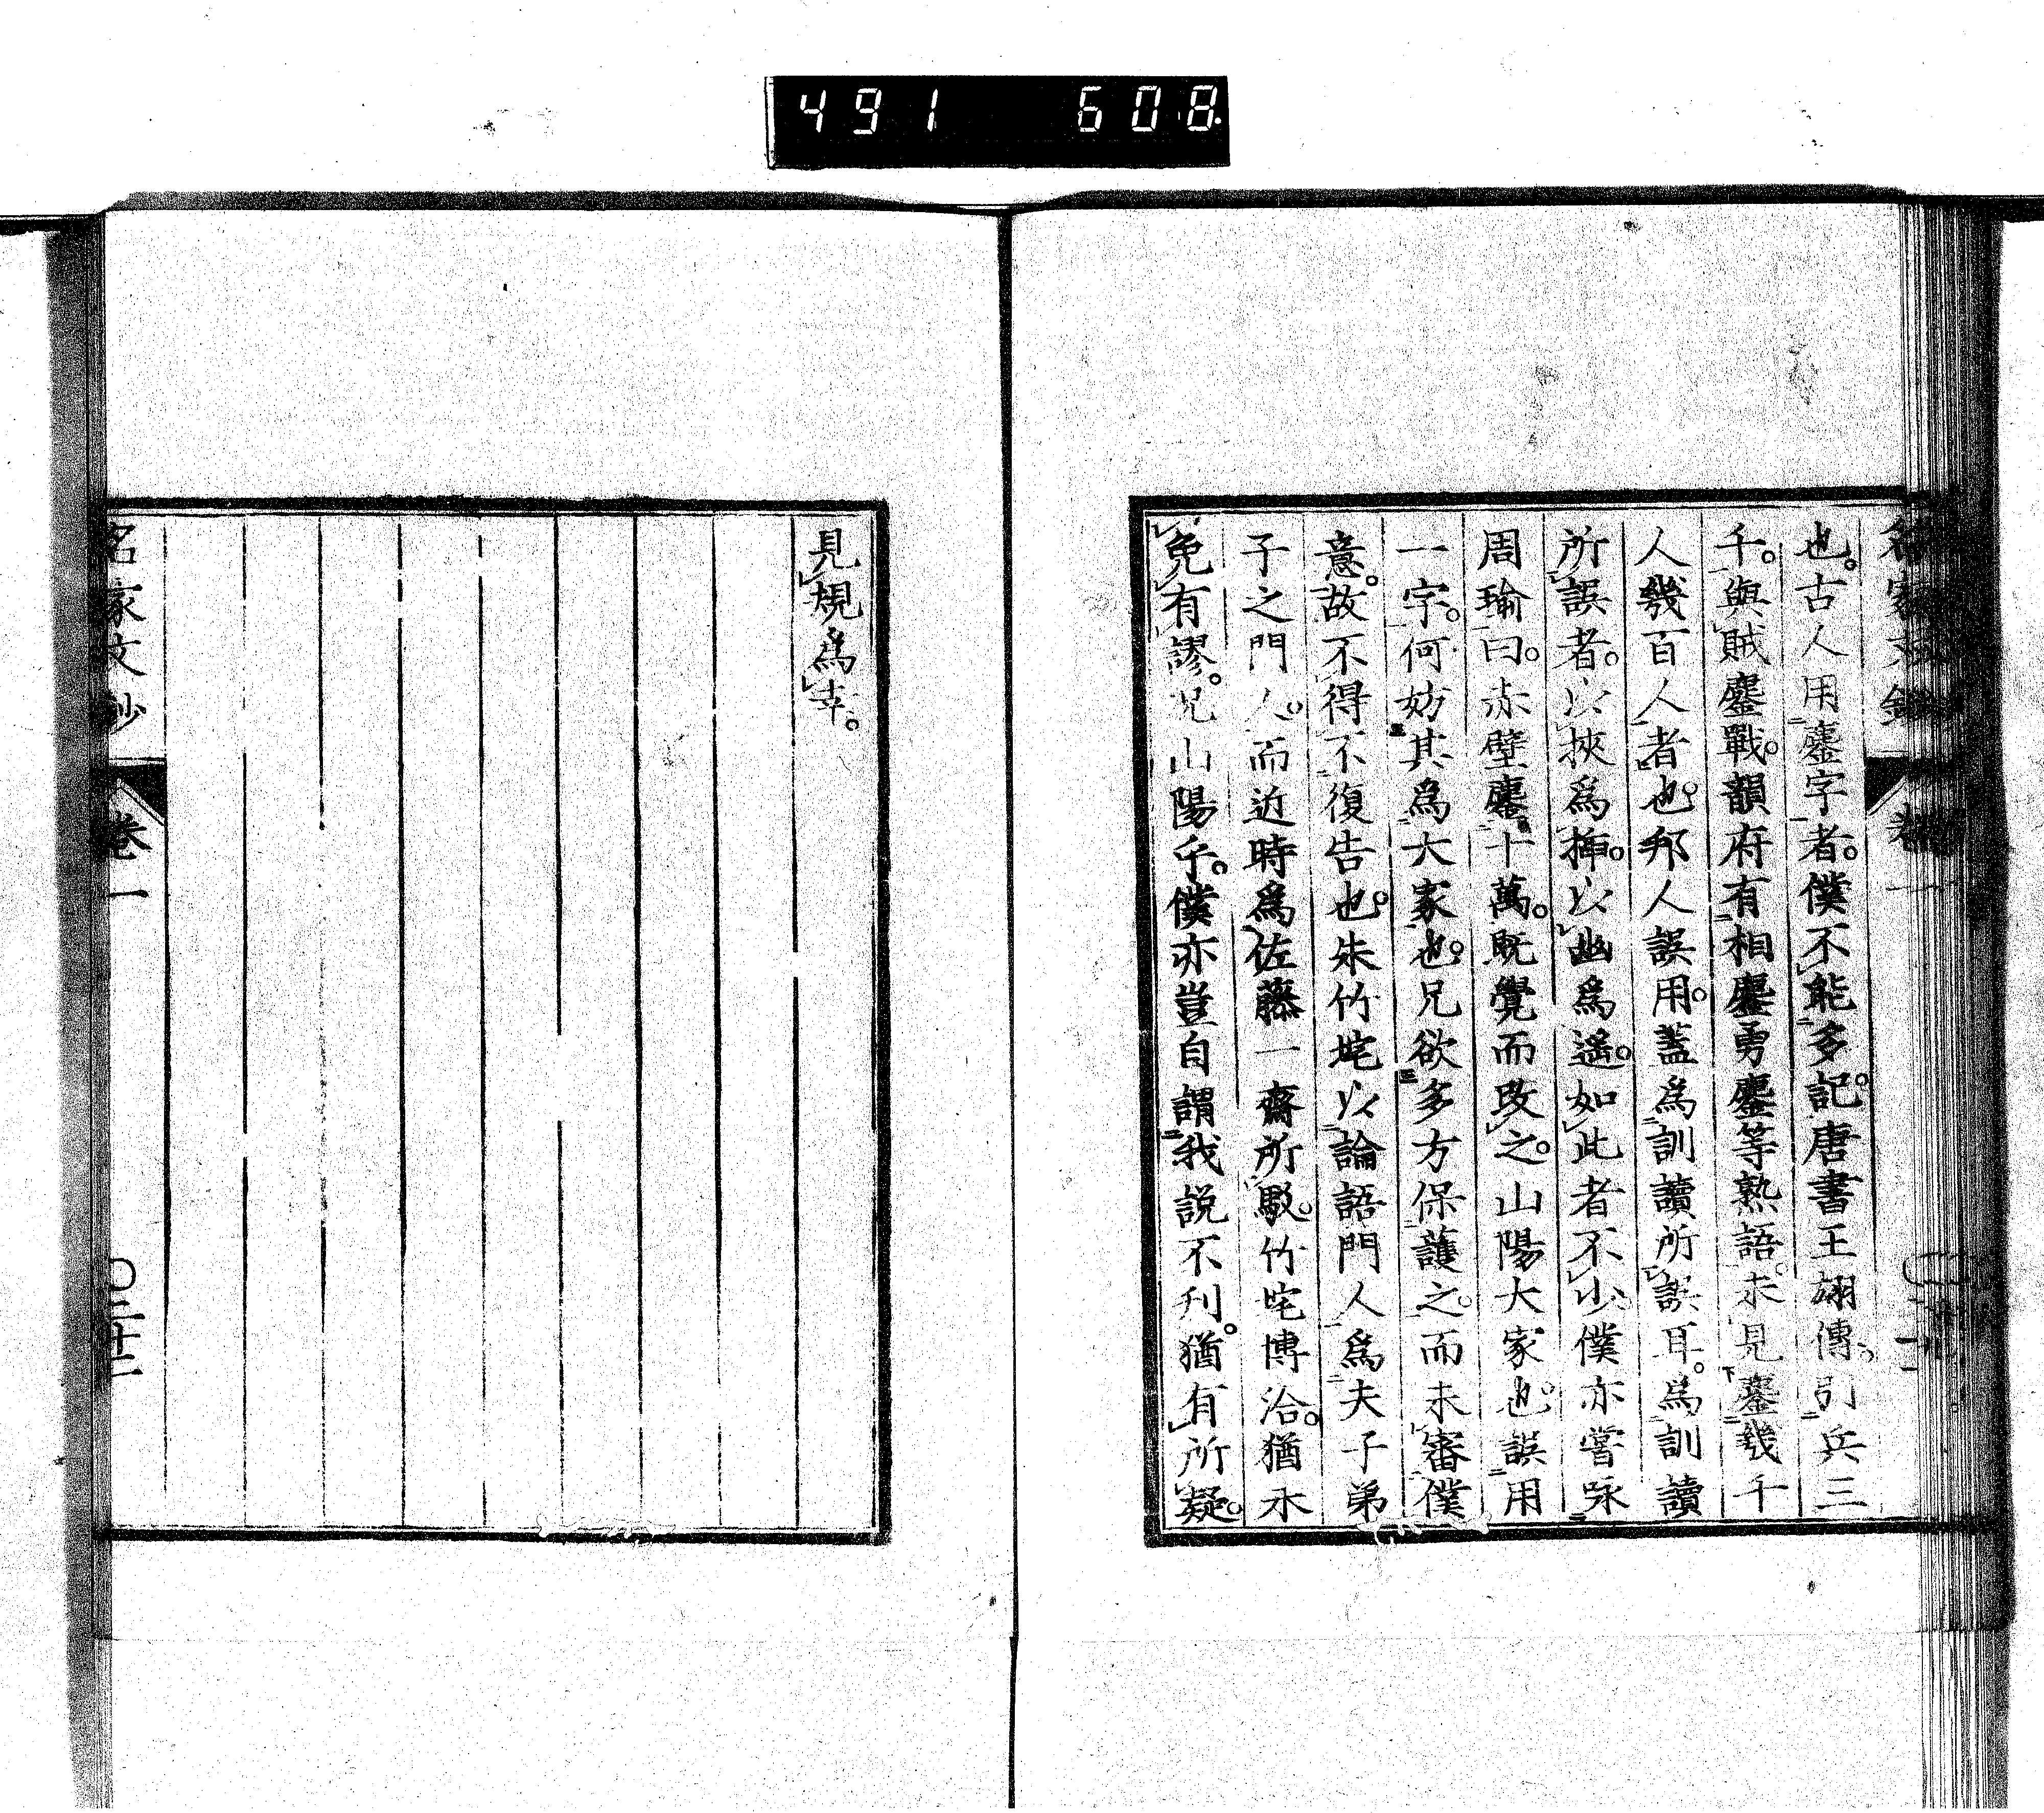 491 608
名家文鈔 卷一
也。古人用鏖字者。僕不能多記。唐書王翃傳。引兵三
千。與賊鏖戰。韻府有相鏖勇鏖等熟語。未見鏖幾千
人幾百人者也。邦人誤用。蓋爲訓讀所誤耳。爲訓讀
所誤者。以挾爲插。以幽爲遥。如此者不少。僕亦嘗咏
周瑜曰。赤壁鏖十萬。既覺而改之。山陽大家也。誤用
一字。何妨其爲大家也。兄欲多方保護之。而未審僕
意。故不得不復告也。朱竹垞以論語門人爲夫子弟
子之門人。而近時爲佐藤一齋所駁。竹咤博洽。猶不
免有謬。况山陽乎。僕亦豈自謂我説不刋。猶有所疑。
見規爲幸。
名家文鈔 卷一